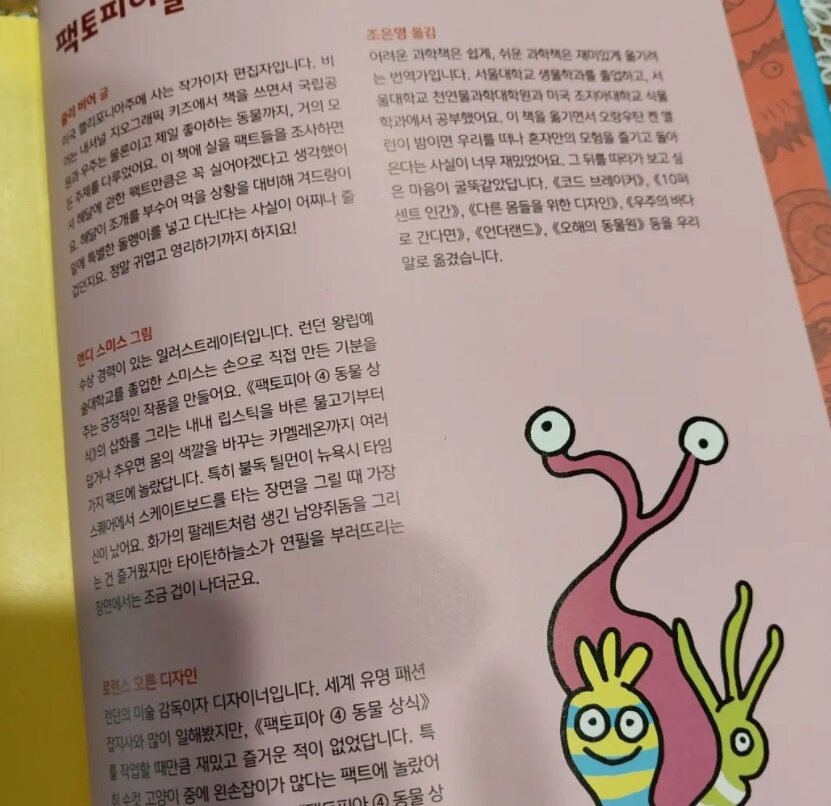 팩토피아를
줄리 비어 글
미국 캘리포니아주에 사는 작가이자 편집자입니다. 비
어는 내셔널 지오그래픽 키즈에서 책을 쓰면서 국립공
원과 우주는 물론이고 제일 좋아하는 동물까지, 거의 모
든 주제를 다루었어요. 이 책에 실을 팩트들을 조사하면
서 해달에 관한 팩트만큼은 꼭 실어야겠다고 생각했어
요. 해달이 조개를 부수어 먹을 상황을 대비해 겨드랑이
밑에 특별한 돌멩이를 넣고 다닌다는 사실이 어찌나 즐
겁던지요. 정말 귀엽고 영리하기까지 하지요!
앤디 스미스 그림
수상 경력이 있는 일러스트레이터입니다. 런던 왕립예
술대학교를 졸업한 스미스는 손으로 직접 만든 기분을
주는 긍정적인 작품을 만들어요. 《팩토피아 ④ 동물 상
식》의 삽화를 그리는 내내 립스틱을 바른 물고기부터
덥거나 추우면 몸의 색깔을 바꾸는 카멜레온까지 여러
가지 팩트에 놀랐답니다. 특히 불독 틸먼이 뉴욕시 타임
스퀘어에서 스케이트보드를 타는 장면을 그릴 때 가장
신이 났어요. 화가의 팔레트처럼 생긴 남양쥐돔을 그리
는 건 즐거웠지만 타이탄하늘소가 연필을 부러뜨리는
장면에서는 조금 겁이 나더군요.
로렌스 모튼 디자인
런던의 미술 감독이자 디자이너입니다. 세계 유명 패션
잡지사와 많이 일해봤지만, 《팩토피아 ④ 동물 상식》
를 작업할 때만큼 재밌고 즐거운 적이 없었답니다. 특
히 수컷 고양이 중에 왼손잡이가 많다는 팩트에 놀랐어
④ 동물 상
조은영 옮김
어려운 과학책은 쉽게, 쉬운 과학책은 재미있게 옮기려
는 번역가입니다. 서울대학교 생물학과를 졸업하고, 서
울대학교 천연물과학대학원과 미국 조지아대학교 식물
학과에서 공부했어요. 이 책을 옮기면서 오랑우탄 켄 앨
런이 밤이면 우리를 떠나 혼자만의 모험을 즐기고 돌아
온다는 사실이 너무 재밌었어요. 그 뒤를 따라가 보고 싶
은 마음이 굴뚝같았답니다. 《코드 브레이커》, 《10퍼
센트 인간》, 《다른 몸들을 위한 디자인》, 《우주의 바다
로 간다면》, 《언더랜드》, 《오해의 동물원》 등을 우리
말로 옮겼습니다.